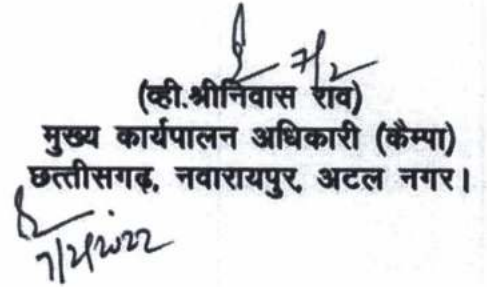 7/2
(व्ही.श्रीनिवास राव)
मुख्य कार्यपालन अधिकारी (कैम्पा)
छत्तीसगढ़, नवारायपुर, अटल नगर।
7/2/2022